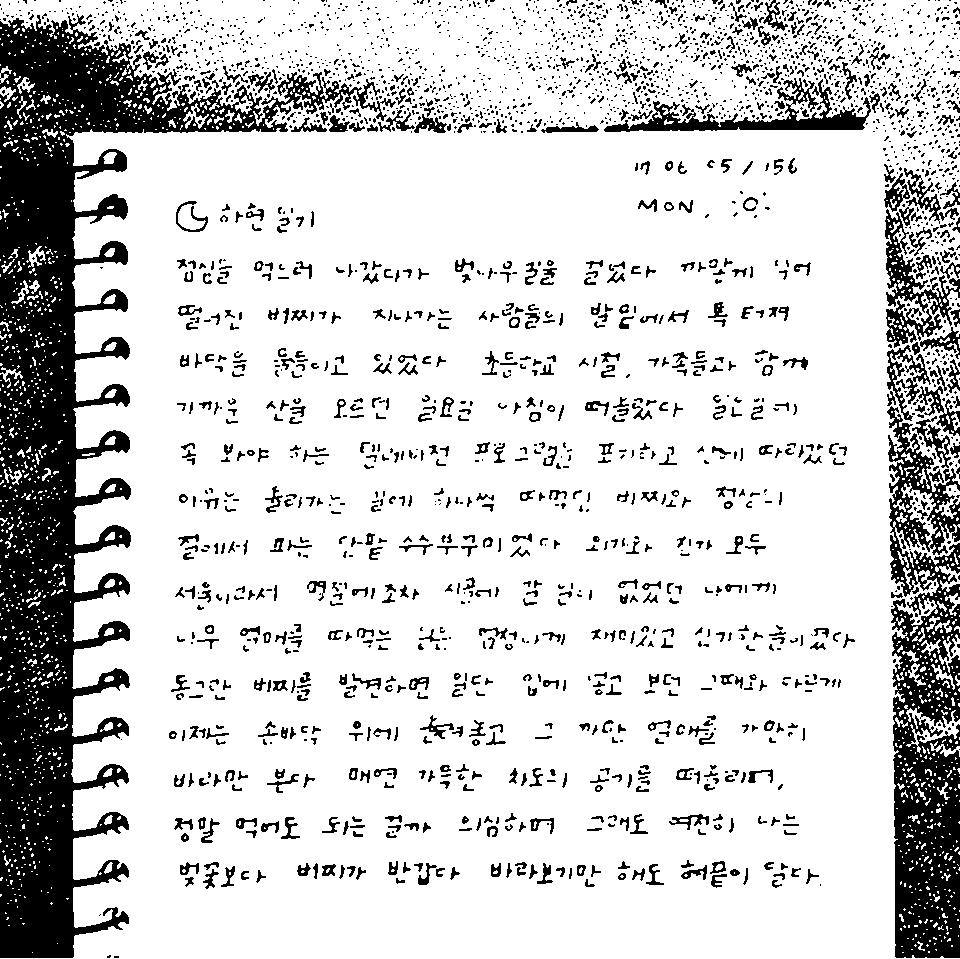 17 06 05 / 156
MON. 
하현 일기
점심을 먹으러 나갔다가 벚나무길을 걸었다 까맣게 익어
떨어진 버찌가 지나가는 사람들의 발밑에서 톡 터져
바닥을 물들이고 있었다 초등학교 시절, 가족들과 함께
가까운 산을 오르던 일요일 아침이 떠올랐다 일요일에
꼭 봐야 하는 텔레비전 프로그램을 포기하고 산에 따라갔던
이유는 올라가는 길에 하나씩 따먹던 버찌와 정상의
절에서 파는 단팥 수수부꾸미였다 외가와 친가 모두
서울이라서 명절에조차 시골에 갈 일이 없었던 나에게
나무 열매를 따먹는 일은 엄청나게 재미있고 신기한 놀이였다
동그란 버찌를 발견하면 일단 입에 넣고 보던 그때와 다르게
이제는 손바닥 위에 올려놓고 그 까만 열매를 가만히
바라만 본다 매연 가득한 차도의 공기를 떠올리며,
정말 먹어도 되는 걸까 의심하며 그래도 여전히 나는
벚꽃보다 버찌가 반갑다 바라보기만 해도 혀끝이 달다.